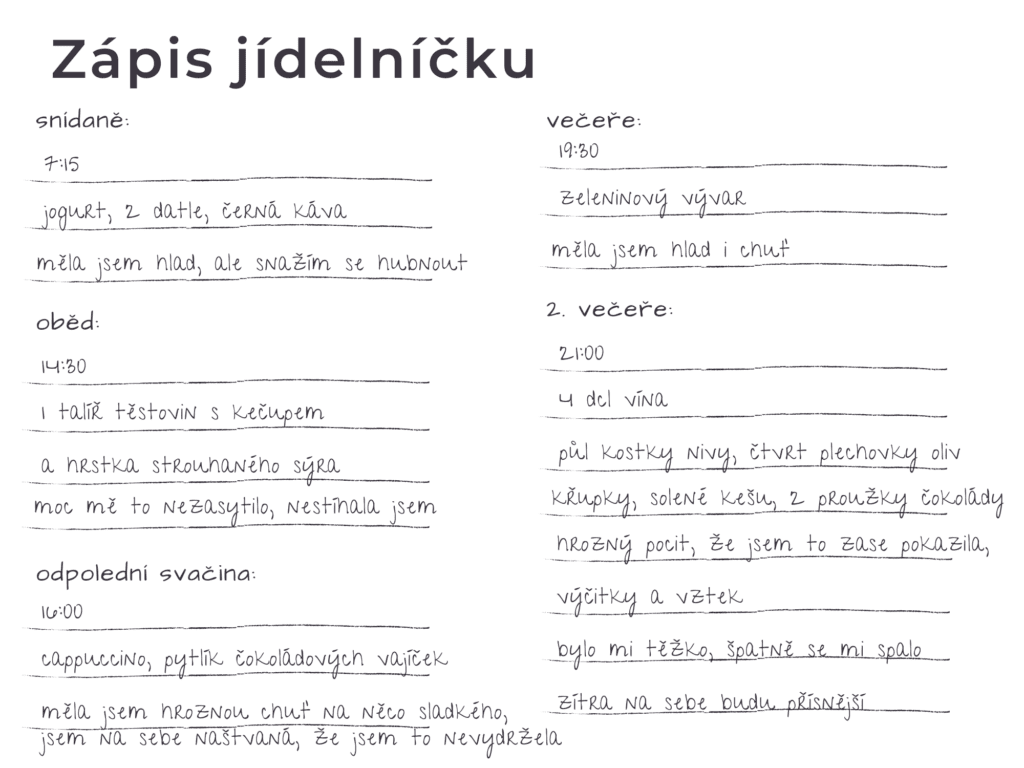 Zápis jídelníčku
snídaně:
7:15
jogurt, 2 datle, černá káva
měla jsem hlad, ale snažím se hubnout
oběd:
14:30
1 talíř těstovin s kečupem
a hrstka strouhaného sýra
moc mě to nezasytilo, nestíhala jsem
odpolední svačina:
16:00
cappuccino, pytlík čokoládových vajíček
měla jsem hroznou chuť na něco sladkého,
jsem na sebe naštvaná, že jsem to nevydržela
večeře:
19:30
zeleninový vývar
měla jsem hlad i chuť
2. večeře:
21:00
4 dcl vína
půl kostky nivy, čtvrt plechovky oliv
křupky, solené kešu, 2 proužky čokolády
hrozný pocit, že jsem to zase pokazila,
výčitky a vztek
bylo mi těžko, špatně se mi spalo
zítra na sebe budu přísnější